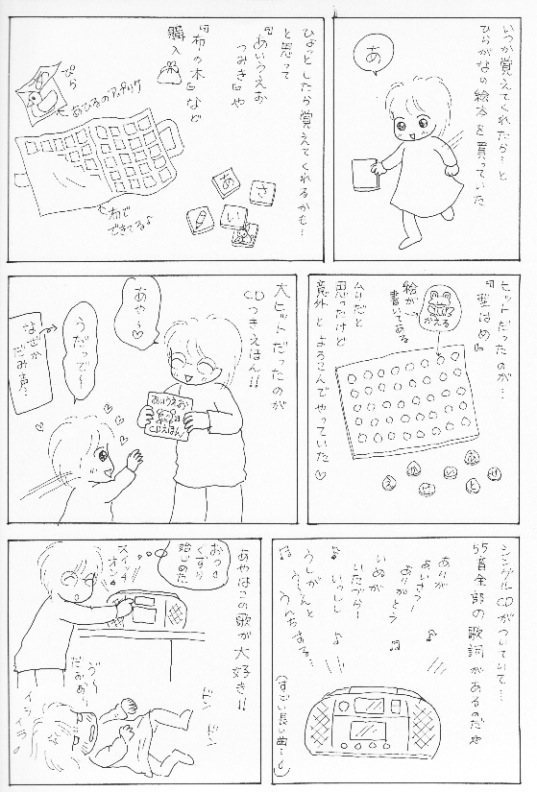 いつか覚えてくれたら…と
ひらがなの絵本を買っていた
あ
ひょっとしたら覚えてくれるかも…
と思って
『あいうえお
つみき』や
『布の本』など
購入
ぴら
あ
あひるのアップリケ
布で
できてる♪
あ
さ
い
ヒットだったのが…
『型はめ』
絵が
書いてある
かえる
ムリだと
思ったけど
意外とよろこんでやっていた♡
え
大ヒットだったのが
CDつきえほん!!
あや〜♡
うだって〜
なぜか
だみ声…
あいうえお
CDえほん
シングルCDがついていて…
55音全部の歌詞があるのだ
ありが
あいさつ
ありがとう
いぬが
いたずら
いっしっし
うしが
う〜んと
うんちする…
(すごい長い曲…)
あやはこの歌が大好き!!
スイッチ
オン
ドン
ドン
イライラ